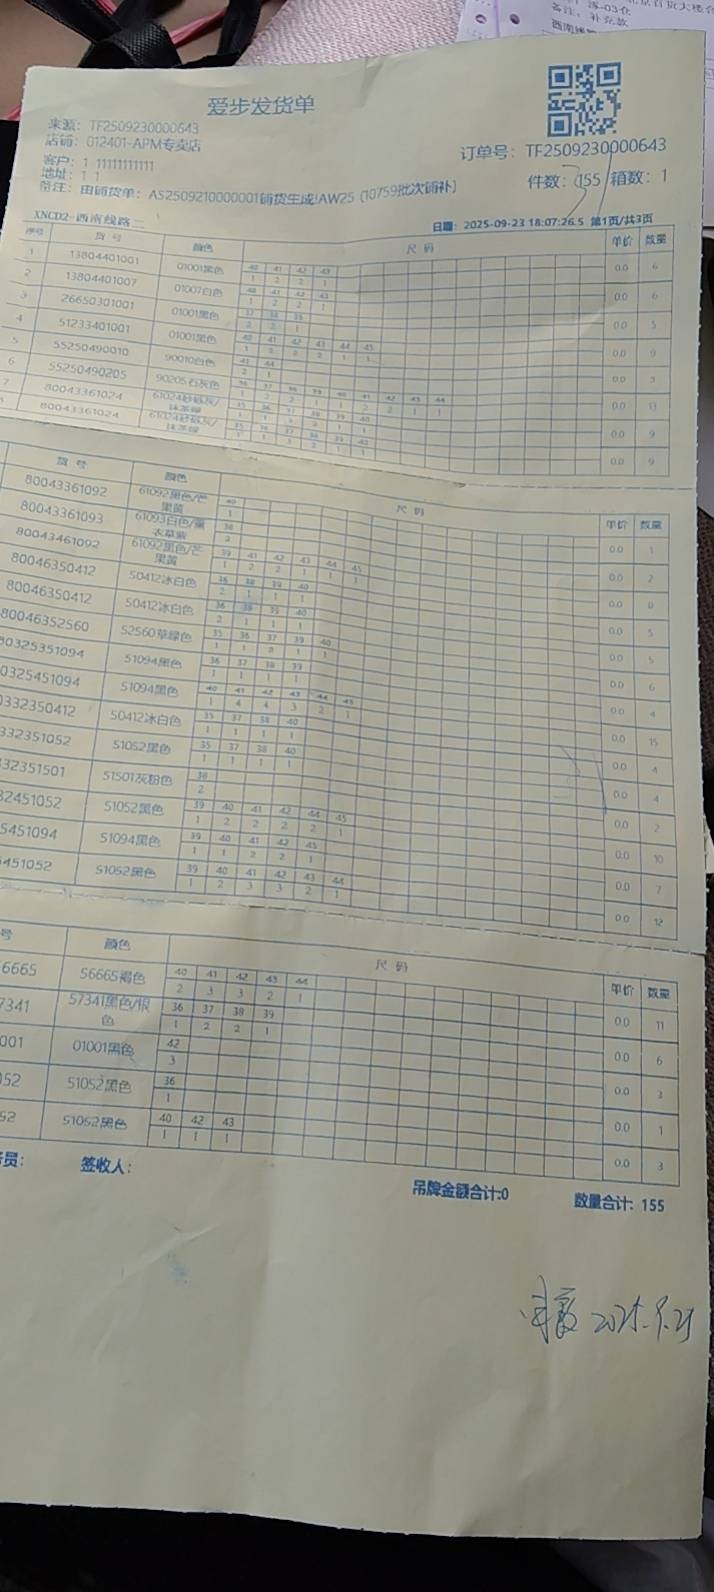 爱步发货单
来源: TF2509230000643
店铺: 012401-APM专卖店
订单号: TF2509230000643
客户: 1 11111111111
地址: 1 1
件数: 155 箱数: 1
备注: 由铺货单: AS2509210000001铺货生成!AW25 (10759批次铺补)
XNCD2-西南线路二
日期: 2025-09-23 18:07:26.5 第1页/共3页
序号 货 号 颜色 尺 码 单价 数量
1 13804401001 01001黑色 40 41 42 43 0.0 6
1 2 2 1
2 13804401007 01007白色 40 41 42 43 0.0 6
1 2 2 1
3 26650301001 01001黑色 37 38 39 0.0 5
2 2 1
4 51233401001 01001黑色 40 41 42 43 44 45 0.0 9
5 55250490010 90010白色 41 44 0.0 3
2 1
6 55250490205 90205石灰色 0.0
7 80043361024 0.0 9
80043361024 0.0 9
货 号 颜色 尺 码 单价 数量
80043361092 61092黑色/芒果黄 40 0.0 1
1
80043361093 38 0.0 2
2
80043461092 61092黑色/芒果黄 39 41 42 43 44 45 0.0 8
1 2 2 1 1 1
80046350412 50412冰白色 36 38 39 40 0.0 5
2 1 1 1
80046350412 50412冰白色 36 38 39 40 0.0 5
2 1 1 1
80046352560 52560草绿色 35 36 37 39 40 0.0 6
1 1 2 1 1
0325351094 51094黑色 36 37 38 39 0.0 4
1 1 1 1
0325451094 51094黑色 40 41 42 43 44 45 0.0 15
1 4 4 3 2 1
0332350412 50412冰白色 35 37 38 40 0.0 4
1 1 1 1
332351052 51052黑色 35 37 38 40 0.0 4
1 1 1 1
32351501 51501灰粉色 38 0.0 2
2
32451052 51052黑色 39 40 41 42 44 45 0.0 10
1 2 2 2 2 1
5451094 51094黑色 39 40 41 42 45 0.0 7
1 1 2 2 1
451052 51052黑色 39 40 41 42 43 44 0.0 12
1 2 3 3 2 1
号 颜色 尺 码 单价 数量
6665 56665褐色 40 41 42 43 44 0.0 11
2 3 3 2 1
7341 57341黑色/银色 36 37 38 39 0.0 6
1 2 2 1
001 01001黑色 42 0.0 3
3
052 51052黑色 36 0.0 1
1
52 51052黑色 40 42 43 0.0 3
1 1 1
员: 签收人: 吊牌金额合计:0 数量合计: 155